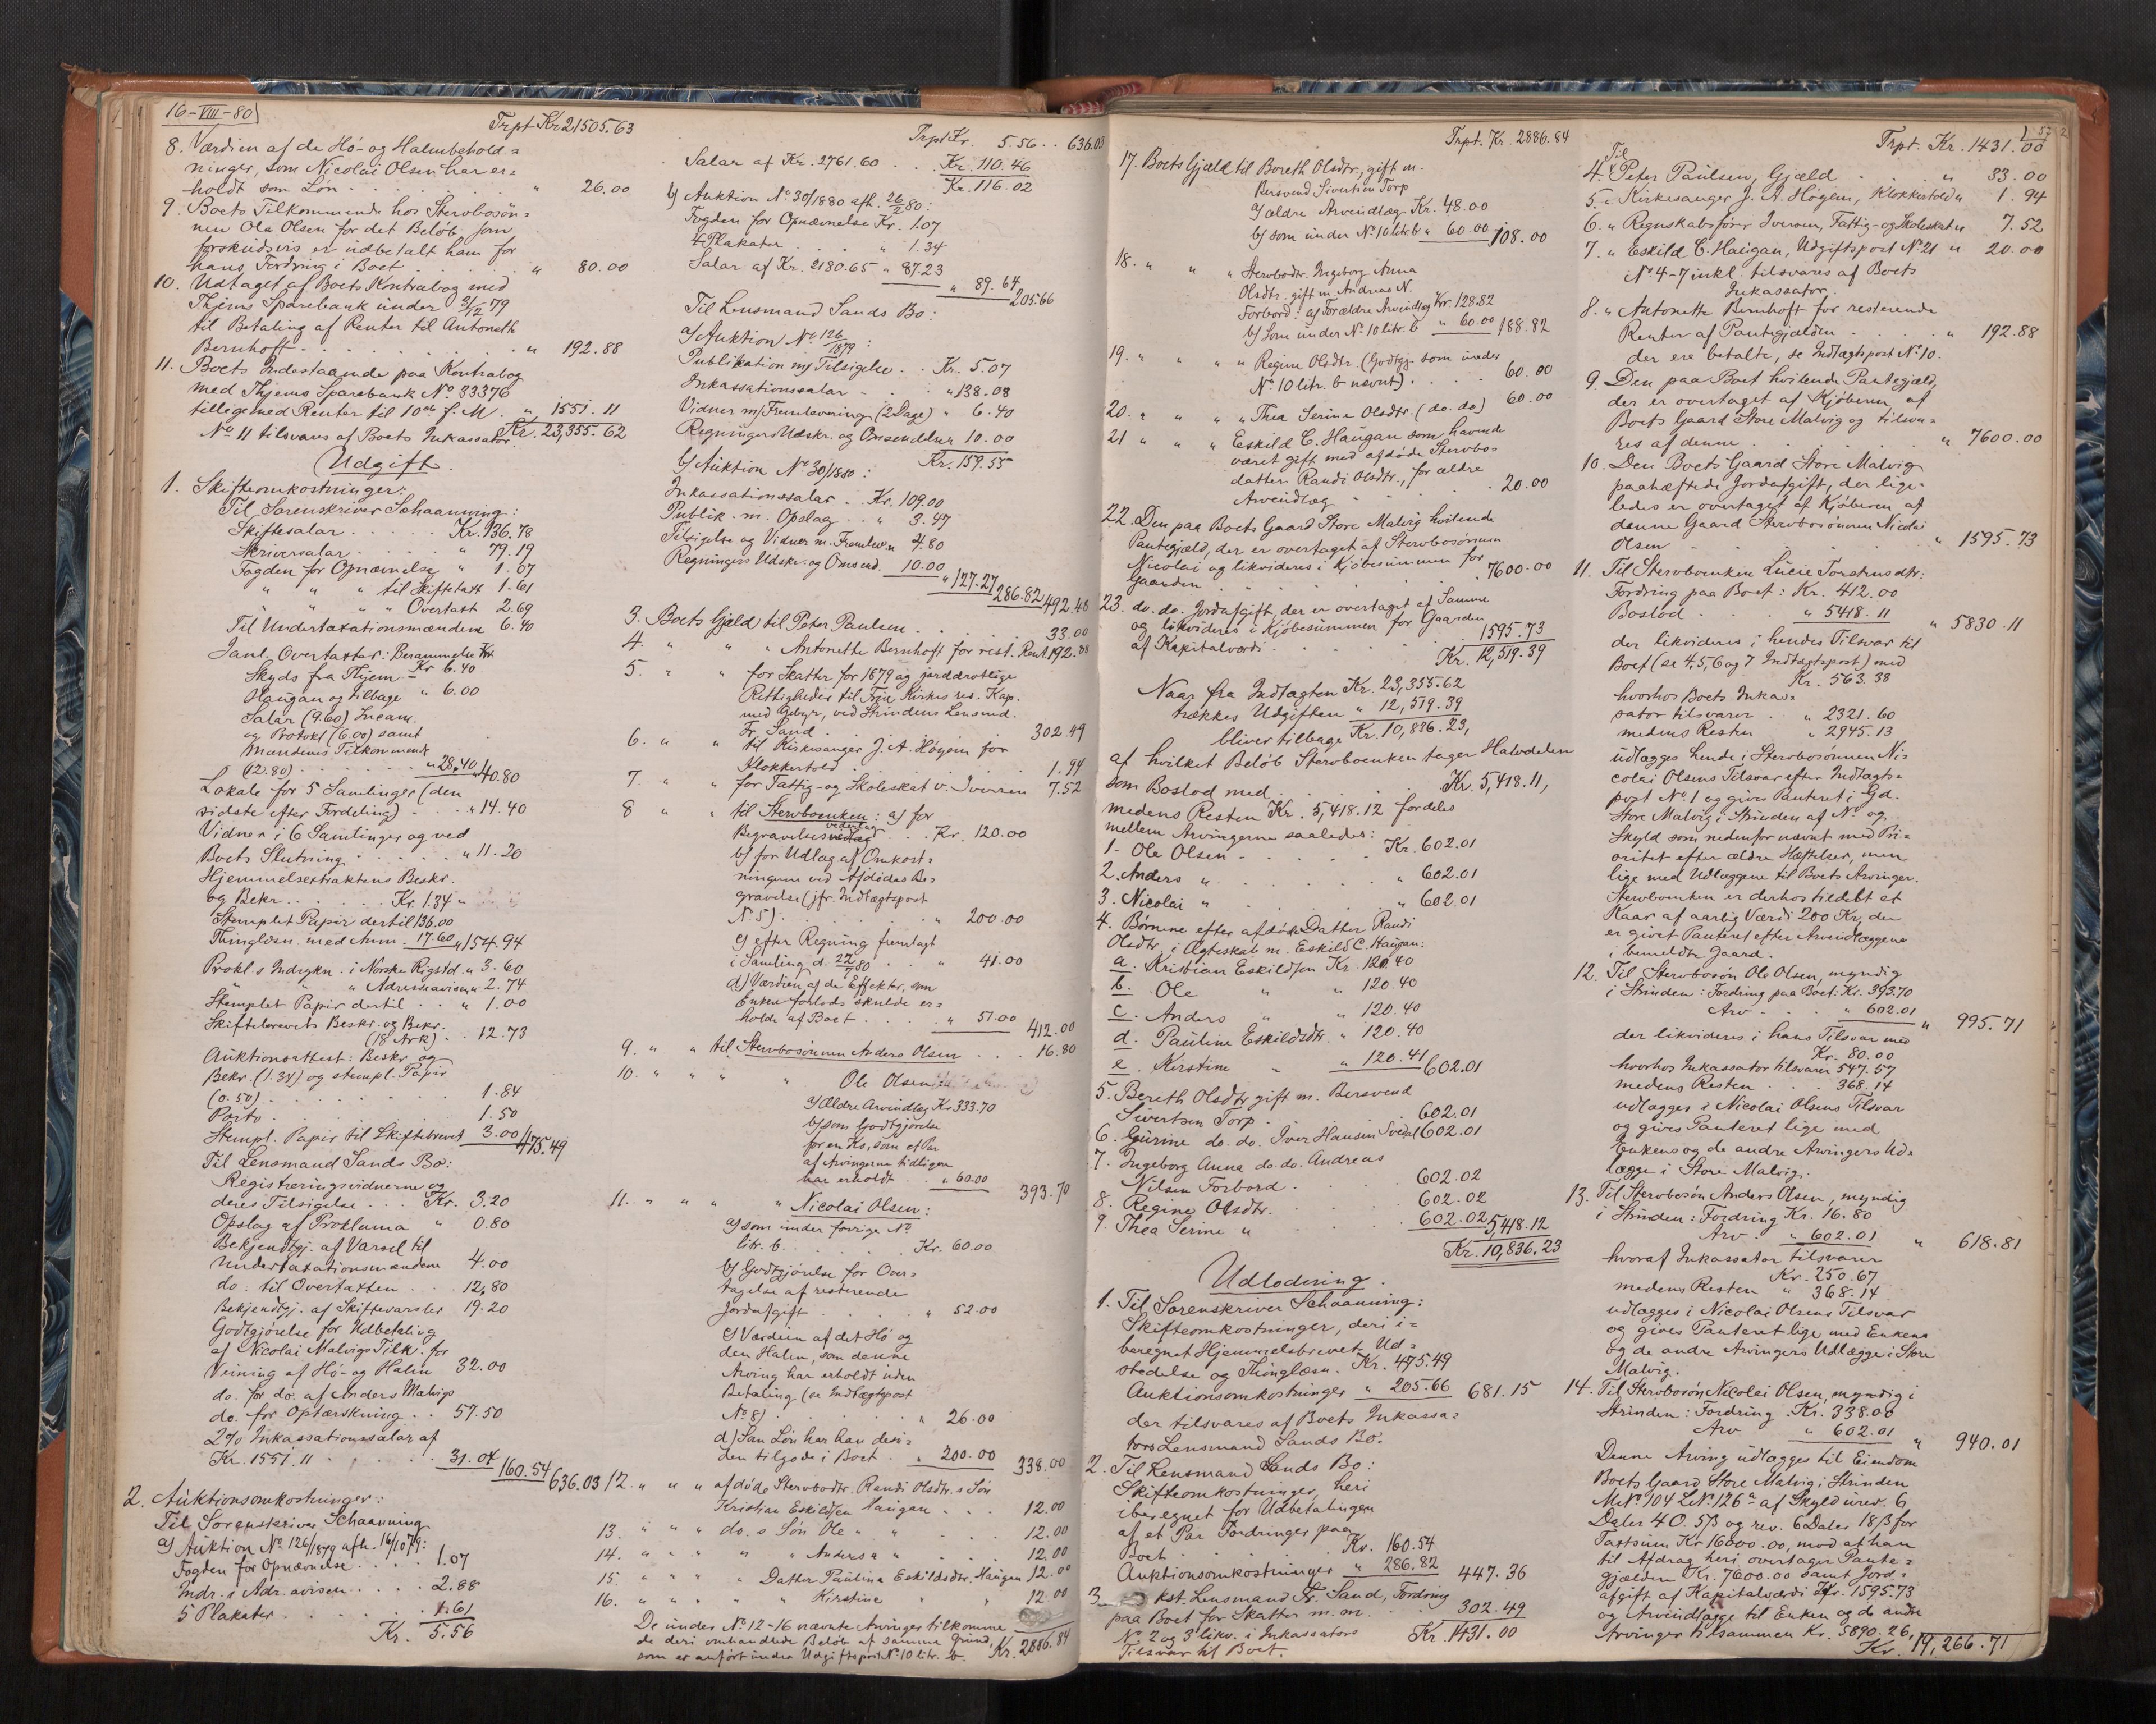 16-VIII-80
Trpt Kr 21505.63
8. Værdien af de Hö- og Halmbehold=
ninger, som Nicolai Olsen har er=
holdt som Lön . . . " 26.00
9. Boets Tilkommende hos Stervbosön=
nen Ole Olsen for det Belöb, som
forskudsvis er udbetalt ham for
hans Fordring i Boet . . . " 80.00
10. Udtaget af Boets Kontrabog med
Thjems Sparebank under 3/12 79
til Betaling af Renter til Antonette
Bernhoft . . . " 192.88
11. Boets Indestaaende paa Kontrabog
med Thjems Sparebank No 33376
tilligemed Renter til 10de f. M. " 1551.11
No 11 tilsvares af Boets Inkassator. Kr. 23,355.62
Udgift.
1. Skifteomkostninger:
Til Sorenskriver Schaanning:
Skiftesalar . . . Kr. 136.78
Skriversalar . . . " 79.19
Fogden for Opnævnelse " 1.07
" " " til Skiftetaxt 1.61
" " " " Overtaxt 2.69
Til Undertaxationsmændene 6.40
Janl. Overtaxter: Berammelse Kr.
Skyds fra Thjem - Kr 6.40
Haugan og tilbage " 6.00
Salar (9.60) Incam.
og Protokl (6.00) samt
Mændenes Tilkommende
(12.80) . . . " 28.40 " 40.80
Lokale for 5 Samlinger (den
sidste efter Fordeling) . . " 14.40
Vidner i 6 Samlinger og ved
Boets Slutning . . . " 11.20
Hjemmelsextraktens Beskr.
og Bekr. . . . Kr. 1.34 "
Stemplet Papir dertil 136.00
Thinglæsn. med Anm. 17.60 " 154.94
Prokl.s Indrykn. i Norske Rigstd. " 3.60
" " " Adresseavisen " 2.74
Stemplet Papir dertil . . " 1.00
Skiftebrevets Beskr. og Bekr.
(18 Ark) . . 12.73
Auktionsattest: Beskr. og
Bekr. (1.34) og stempl. Papir
(0.50) . . . 1.84
Porto . . . 1.50
Stempl. Papir til Skiftebrevet 3.00 475.49
Til Lensmand Sands Bo:
Registreringsvidnerne og
deres Tilsigelse . . . Kr. 3.20
Opslag af Proklama " 0.80
Bekjendtgj. af Varsel til
Undertaxationsmændene 4.00
do. til Overtaxten . . 12.80
Bekjendtgj. af Skiftevarsler 19.20
Godtgjörelse for Udbetaling
af Nicolai Malvigs Tilk. for
Veining af Hö- og Halm 32.00
do. for do. af Anders Malvigs
do. for Optærskning . . 57.50
2% Inkassationssalar af
Kr. 1551.11 . . . 31.04 160.54 636.03
2. Auktionsomkostninger:
Til Sorenskriver Schaanning
a) Auktion No. 126/1879 afh. 16/10 79:
Fogden for Opnævnelse . . . 1.07
Indr. i Adr. avisen . . . 2.88
5 Plakater . . . 1.61
Kr. 5.56
Trpt Kr. 5.56 . . 636.03
Salar af Kr. 2761.60 . . Kr. 110.46
Kr. 116.02
b) Auktion No. 30/1880 afh. 26/2 80:
Fogden for Opnævnelse Kr. 1.07
4 Plakater . . " 1.34
Salar af Kr. 2180.65 " 87.23
" 89.64
205.66
Til Lensmand Sands Bo:
a) Auktion No. 126/1879:
Publikation m/ Tilsigelse . . Kr. 5.07
Inkassationssalar . . " 138.08
Vidner m/ Fremlevering (2 Dage) " 6.40
Regningers Udskr. og Omsendelse 10.00
Kr. 159.55
b) Auktion No. 30/1880:
Inkassationssalar . . Kr. 109.00
Publik. m. Opslag . . " 3.47
Tilsigelse og Vidner m. Fremlev. " 4.80
Regningers Udskr. og Omsend. 10.00
" 127.27 286.82 492.48
3. Boets Gjæld til Peter Paulsen . . . 33.00
4. " " " Antonette Bernhoft for rest. Rent. 192.88
5. " " for Skatter for 1879 og jorddrotlige
Rettigheder til Frue Kirkes res. Kap.
med Gebyr, ved Strindens Lensmd.
Fr. Sand . . . 302.49
6. " " til Kirkesanger J. A. Högem for
Klokkertold . . . 1.94
7. " " for Fattig- og Skoleskat v. Iversen 7.52
8 " " til Stervboenken: a) for
Begravelsesvederlag . . Kr. 120.00
b) for Udlæg af Omkost=
ningerne ved Afdödes Be=
gravelse (jfr. Indtægtspost
No. 5) . . . " 200.00
c) efter Regning fremlagt
i Samling d. 22/7 80 . . " 41.00
d) Værdien af de Effekter, som
Enken forlods skulde er=
holde af Boet . . . " 51.00 412.00
9. " " til Stervbosönnen Anders Olsen . . . 16.80
10. " " " " Ole Olsen
a) Ældre Arvindlæg Kr 333.70
b) som Godtgjörelse
for en Ko, som et Par
af Arvingerne tidligere
har erholdt . . " 60.00 393.70
11. " " " " Nicolai Olsen:
a) som under forrige No.
litr. b. . . . Kr. 60.00
b) Godtgjörelse for Over=
tagelse af resterende
Jordafgift . . . " 52.00
c) Værdien af det Hö og
den Halm, som denne
Arving har erholdt uden
Betaling (se Indtægtspost
No 8) . . . " 26.00
d) San Lön har han desu=
den tilgode i Boet . " 200.00 338.00
12. " " " afdöde Stervbodtr. Randi Olsdtr.s Sön
Kristian Eskildsen Haugan . . . 12.00
13. " " " do.s Sön Ole " " . . . 12.00
14. " " " " " Anders " " . . . 12.00
15. " " " " Datter Paulina Eskildsdtr. Haugan 12.00
16. " " " " " Kirstine " " 12.00
De under No. 12-16 nævnte Arvinger tilkomme
de deri omhandlede Belöb af samme Grund,
som er anfört under Udgiftspost No. 10 litr. b. Kr. 2886.84
Trpt. Kr. 2886.84
17. Boets Gjæld til Boreth Olsdtr., gift m.
Bersvend Sivertsen Torp
a) ældre Arvindlæg Kr. 48.00
b) som under No 10 litr. b " 60.00 108.00
18. " " " Stervbodtr. Ingeborg Anna
Olsdtr. gift m. Andreas N.
Forbord: a) Forældre Arvindlæg Kr. 128.82
b) Som under No. 10 litr. b " 60.00 188.82
19. " " " " Regine Olsdtr. (Godtgj. som under
No. 10 litr. b nævnt) . . . 60.00
20. " " " " Thea Serine Olsdtr. (do. do) 60.00
21 " " " Eskild C. Haugan som havende
været gift med afdöde Stervbo=
datter Randi Olsdtr., for ældre
Arvindlæg . . . 20.00
22. Den paa Boets Gaard Store Malvig hvilende
Pantegjæld, der er overtaget af Stervbosönnen
Nicolai og likvideres i Kjöbesummen for
Gaarden . . . 7600.00
23. do. do. Jordafgift, der er overtaget af Samme
og likvideres i Kjöbesummen for Gaarden
af Kapitalværdi . . . 1595.73
Kr. 12,519.39
Naar fra Indtægten Kr. 23,355.62
trækkes Udgiften " 12,519.39
bliver tilbage Kr. 10,836.23,
af hvilket Belöb Stervboenken tager Halvdelen
som Boslod med . . . Kr. 5,418.11,
medens Resten Kr. 5,418.12 fordeles
mellem Arvingerne saaledes:
1. Ole Olsen . . . Kr. 602.01
2. Anders " . . . " 602.01
3. Nicolai " . . . " 602.01
4. Börnene efter afdöde Datter Randi
Olsdtr. i Ægteskab m. Eskild C. Haugan:
a. Kristian Eskildsen Kr. 120.40
b. Ole " " 120.40
c. Anders " " 120.40
d. Pauline Eskildsdtr. " 120.40
e. Kirstine " " 120.41 602.01
5. Bereth Olsdtr gift m. Bersvend
Sivertsen Torp . . . 602.01
6. Gurine do. do. Iver Hansen Svedal 602.01
7. Ingeborg Anna do. do. Andreas
Nilsen Forbord . . . 602.02
8. Regine Olsdtr. . . . 602.02
9. Thea Serine " . . . 602.02 5418.12
Kr. 10,836.23
Udlodning.
1. Til Sorenskriver Schaanning:
Skifteomkostninger, deri i=
beregnet Hjemmelsbrevets Ud=
stedelse og Thinglæsn. Kr. 475.49
Auktionsomkostninger " 205.66 681.15
der tilsvares af Boets Inkassa=
tors Lensmand Sands Bo.
2. Til Lensmand Sands Bo:
Skifteomkostninger, heri
iberegnet for Udbetalingen
af et Par Fordringer paa
Boet . . . Kr. 160.54
Auktionsomkostninger " 286.82 447.36
3. kst. Lensmand Fr. Sand, Fordring
paa Boet for Skatter m.m. . . . 302.49
No. 2 og 3 likv. i Inkassators Kr. 1431.00
Tilsvar til Boet.
572
Trpt. Kr. 1431.00
Til
4. Peter Paulsen, Gjæld . . . " 33.00
5. " Kirkesanger J. A. Högem, Klokkertold " 1.94
6. " Regnskabsförer Iversen, Fattig- og Skoleskat " 7.52
7. " Eskild C. Haugan, Udgiftspost No 21 " 20.00
No 4-7 inkl. tilsvares af Boets
Inkassator.
8. " Antonette Bernhoft for resterende
Renter af Pantegjælden . . . " 192.88
der ere betalte, se Indtægtspost No. 10.
9. Den paa Boet hvilende Pantegjæld,
der er overtaget af Kjöberen af
Boets Gaard Store Malvig og tilsva=
res af denne . . . " 7600.00
10. Den Boets Gaard Store Malvig
paahæftede Jordafgift, der lige=
ledes er overtaget af Kjöberen af
denne Gaard Stervbosönnen Nicolai
Olsen . . . " 1595.73
11. Til Stervboenken Lucie Torstensdtr:
Fordring paa Boet: Kr. 412.00
Boslod . . . " 5418.11 " 5830.11
der likvideres i hendes Tilsvar til
Boet (se 4, 5, 6 og 7 Indtægtspost) med
Kr. 563.38
hvorhos Boets Inkas=
sator tilsvarer . " 2321.60
medens Resten " 2945.13
udlægges hende i Stervbosönnen Ni=
colai Olsens Tilsvar efter Indtægts=
post No. 1 og gives Panteret i Gd.
Store Malvig i Strinden af No og
Skyld som nedenfor nævnt med Pri=
oritet efter ældre Hæftelser, men
lige med Udlæggene til Boets Arvinger.
Stervboenken er derhos tildelt et
Kaar af aarlig Værdi 200 Kr, der
er givet Panteret efter Arvindlæggene
i bemeldte Gaard.
12. Til Stervbosön Ole Olsen, myndig
i Strinden: Fordring paa Boet: Kr. 393.70
Arv . . . " 602.01 " 995.71
der likvideres i hans Tilsvar med
Kr. 80.00
hvorhos Inkassator tilsvarer 547.57
medens Resten . . 368.14
udlægges i Nicolai Olsens Tilsvar
og gives Panteret lige med
Enkens og de andre Arvingers Ud=
lægge i Store Malvig.
13. Til Stervbosön Anders Olsen, myndig
i Strinden: Fordring Kr. 16.80
Arv . " 602.01 " 618.81
hvoraf Inkassator tilsvarer
Kr. 250.67
medens Resten " 368.14
udlægges i Nicolai Olsens Tilsvar
og gives Panteret lige med Enkens
og de andre Arvingers Udlægge i Store
Malvig.
14. Til Stervbosön Nicolai Olsen, myndig i
Strinden: Fordring . Kr. 338.00
Arv " 602.01 " 940.01
Denne Arving udlægges til Eiendom
Boets Gaard Store Malvig i Strinden
M.No 104 L.No. 126a af Skyld urev. 6
Daler 4 O. 5 β og rev. 6 Daler 18 β for
Taxtsum Kr 16000.00, mod at han
til Afdrag heri overtager Pante=
gjælden Kr. 7600.00 samt Jord=
afgift af Kapitalværdi Kr. 1595.73
og Arvindlægge til Enken og de andre
Arvinger tilsammen Kr. 5890.26,
Kr. 19,266.71